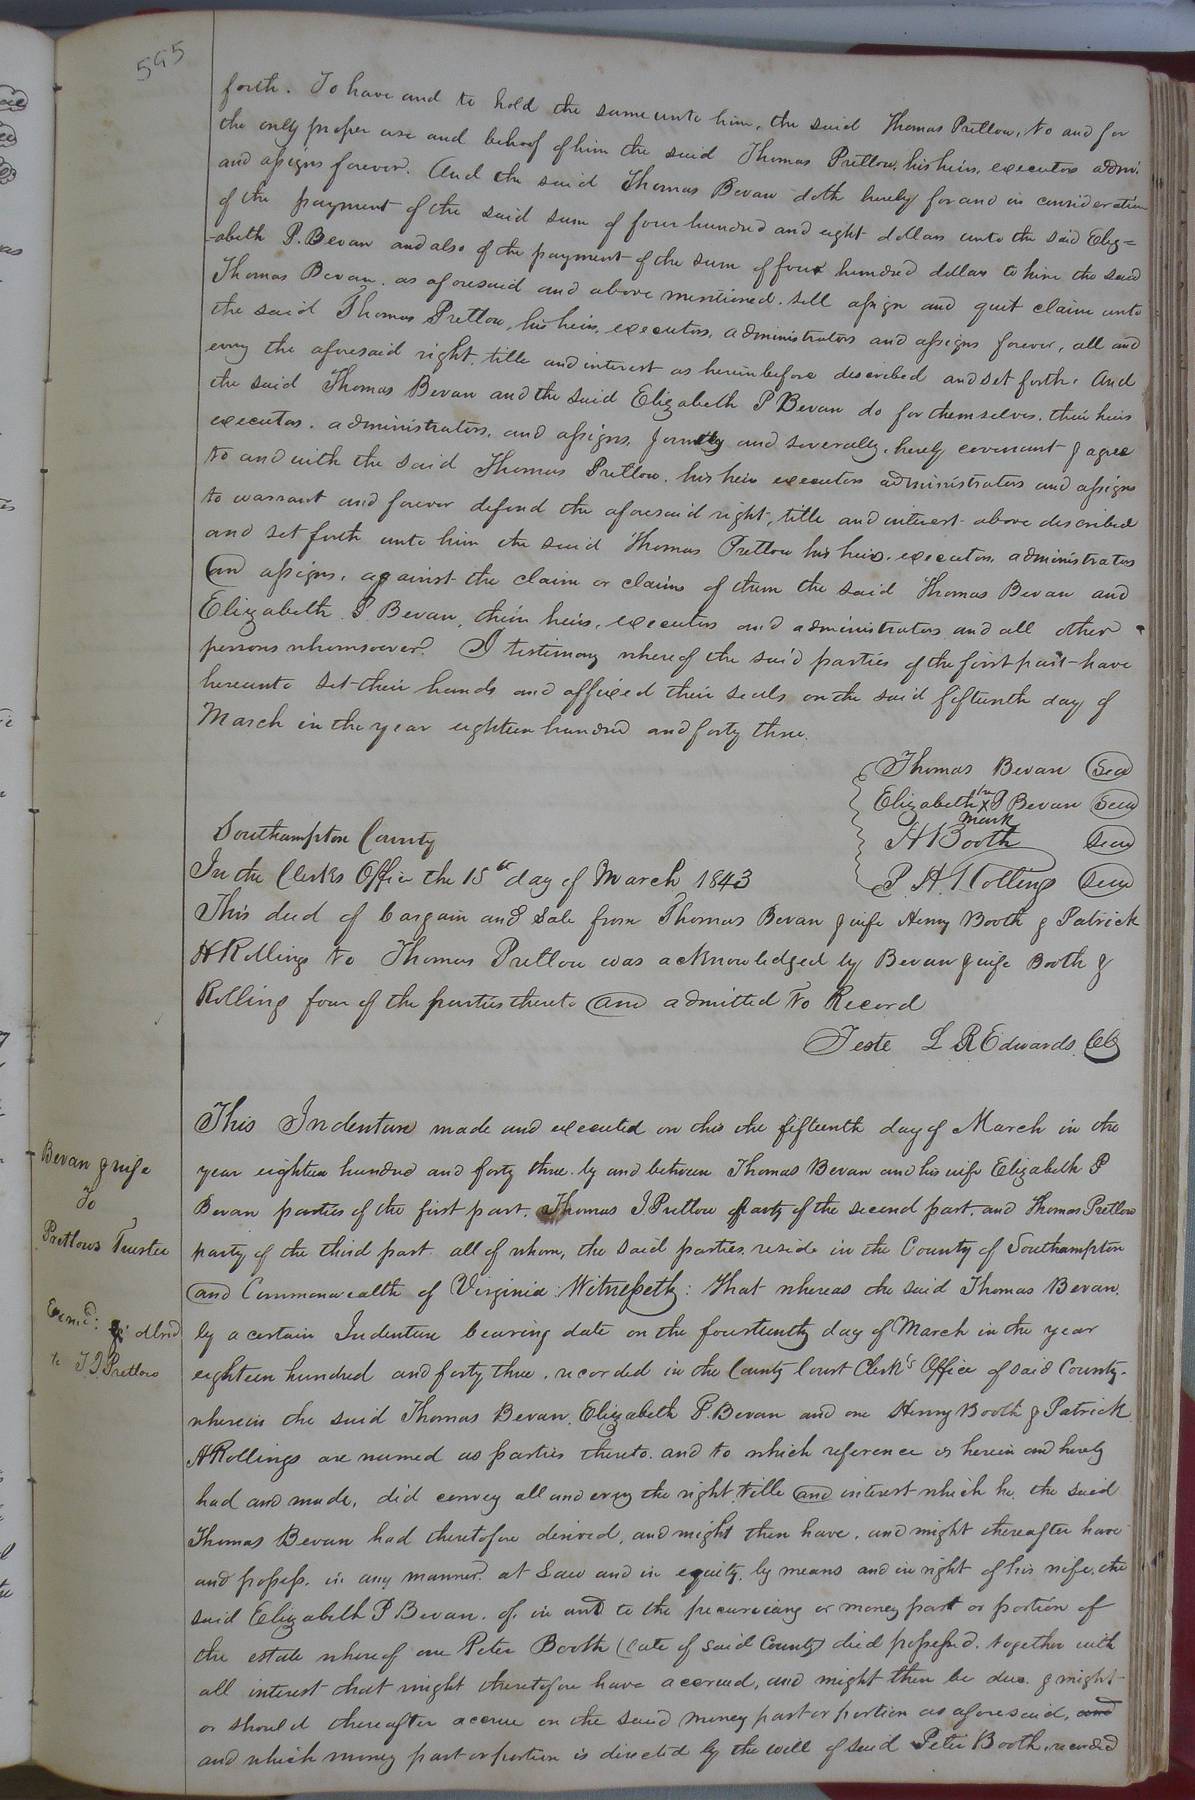 595
forth. To have and to hold the same unto him, the said Thomas Pretlow, to and for
the only proper use and behoof of him the said Thomas Pretlow, his heirs, executors admr.
and assigns forever. And the said Thomas Bevan doth hereby for and in consideration
of the payment of the said sum of four hundred and eight dollars unto the said Eliz=
-abeth P. Bevan and also of the payment of the sum of four hundred dollars to him the said
Thomas Bevan, as aforesaid and above mentioned, sell assign and quit claim unto
the said Thomas Pretlow, his heirs, executors, administrators and assigns forever, all and
every the aforesaid right, title and interest as herein before described and set forth. And
the said Thomas Bevan and the said Elizabeth P Bevan do for themselves, their heirs
executors, administrators, and assigns, jointly and severally, hereby covenant & agree
to and with the said Thomas Pretlow, his heirs executors administrators and assigns
to warrant and forever defend the aforesaid right, title and interest above described
and set forth unto him the said Thomas Pretlow his heirs, executors, administrators
and assigns, against the claim or claims of them the said Thomas Bevan and
Elizabeth P. Bevan, their heirs, executors and administrators and all other
persons whomsoever. I testimony whereof the said parties of the first part have
hereunto set their hands and affixed their seals on the said fifteenth day of
March in the year eighteen hundred and forty three.
Thomas Bevan Seal
her
Elizabeth X P Bevan Seal
mark
H Booth Seal
P. H. Rollings Seal
Southampton County
In the Clerks Office the 15th day of March 1843
This deed of bargain and Sale from Thomas Bevan & wife Henry Booth & Patrick
H Rollings to Thomas Pretlow was acknowledged by Bevan & wife Booth &
Rolling four of the parties thereto and admitted to Record
Teste L R Edwards Clk
Bevan & wife
To
Pretlows Trustee
Examd: & dlvd
to T. J Pretlow
This Indenture made and executed on this the fifteenth day of March in the
year eighteen hundred and forty three by and between Thomas Bevan and his wife Elizabeth P
Bevan parties of the first part, Thomas J. Pretlow party of the second part, and Thomas Pretlow
party of the third part all of whom, the said parties, reside in the County of Southampton
and Commonwealth of Virginia: Witnesseth: That whereas the said Thomas Bevan,
by a certain Indenture bearing date on the fourteenth day of March in the year
eighteen hundred and forty three, recorded in the County Court Clerk's Office of said County,
wherein the said Thomas Bevan, Elizabeth P. Bevan and one Henry Booth & Patrick
H Rollings are named as parties thereto, and to which reference is herein and hereby
had and made, did convey all and every the right title and interest which he, the said
Thomas Bevan had theretofore derived, and might then have, and might thereafter have
and possess, in any manner, at Law and in equity, by means and in right of his wife, the
said Elizabeth P Bevan, of, in and to the pecuniary or money part or portion of
the estate whereof one Peter Booth (late of said County) died possessed, together with
all interest that might theretofore have accrued, and might then be due & might
or should thereafter accrue on the said money part or portion as aforesaid, and
and which money part or portion is directed by the will of said Peter Booth, recorded